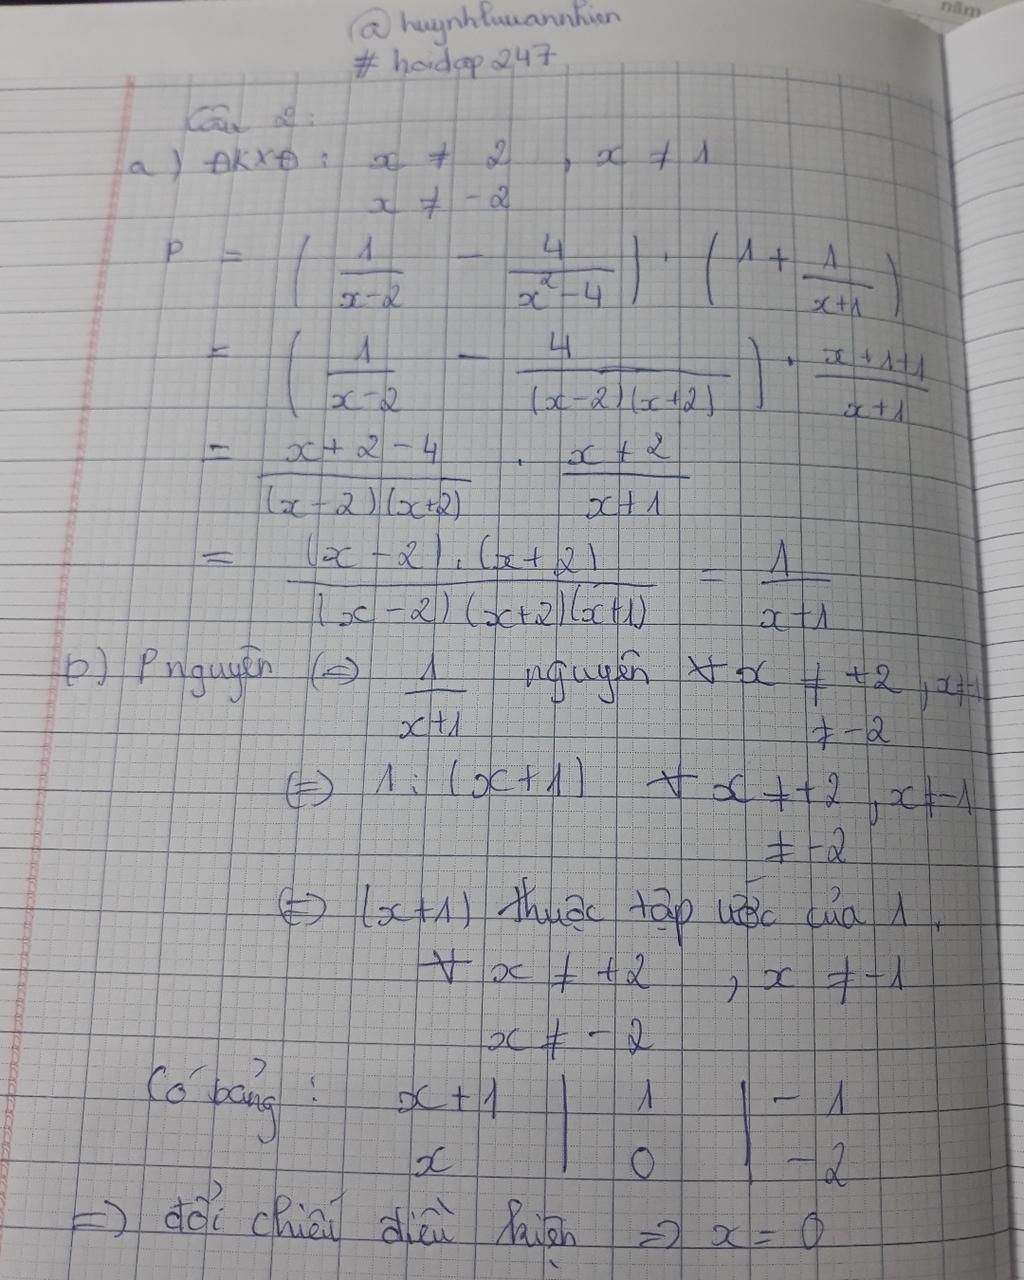 năm
@huynhluuannhien
# hoidap247
Câu 2:
a) ĐKXĐ: x ≠ 2 , x ≠ 1
x ≠ -2
P = ( 1/(x-2) - 4/(x²-4) ) . ( 1 + 1/(x+1) )
= ( 1/(x-2) - 4/((x-2)(x+2)) ) . (x+1+1)/(x+1)
= (x+2-4)/((x-2)(x+2)) . (x+2)/(x+1)
= ((x-2).(x+2))/((x-2)(x+2)(x+1)) = 1/(x+1)
b) P nguyên (=) 1/(x+1) nguyên ∀ x ≠ +2 , x ≠ -1
≠ -2
(=) 1 ⋮ (x+1) ∀ x ≠ +2 , x ≠ -1
≠ -2
(=) (x+1) thuộc tập ước của 1 .
∀ x ≠ +2 , x ≠ -1
x ≠ -2
Có bảng : x+1 | 1 | -1
x | 0 | -2
=) đối chiếu điều kiện =) x = 0